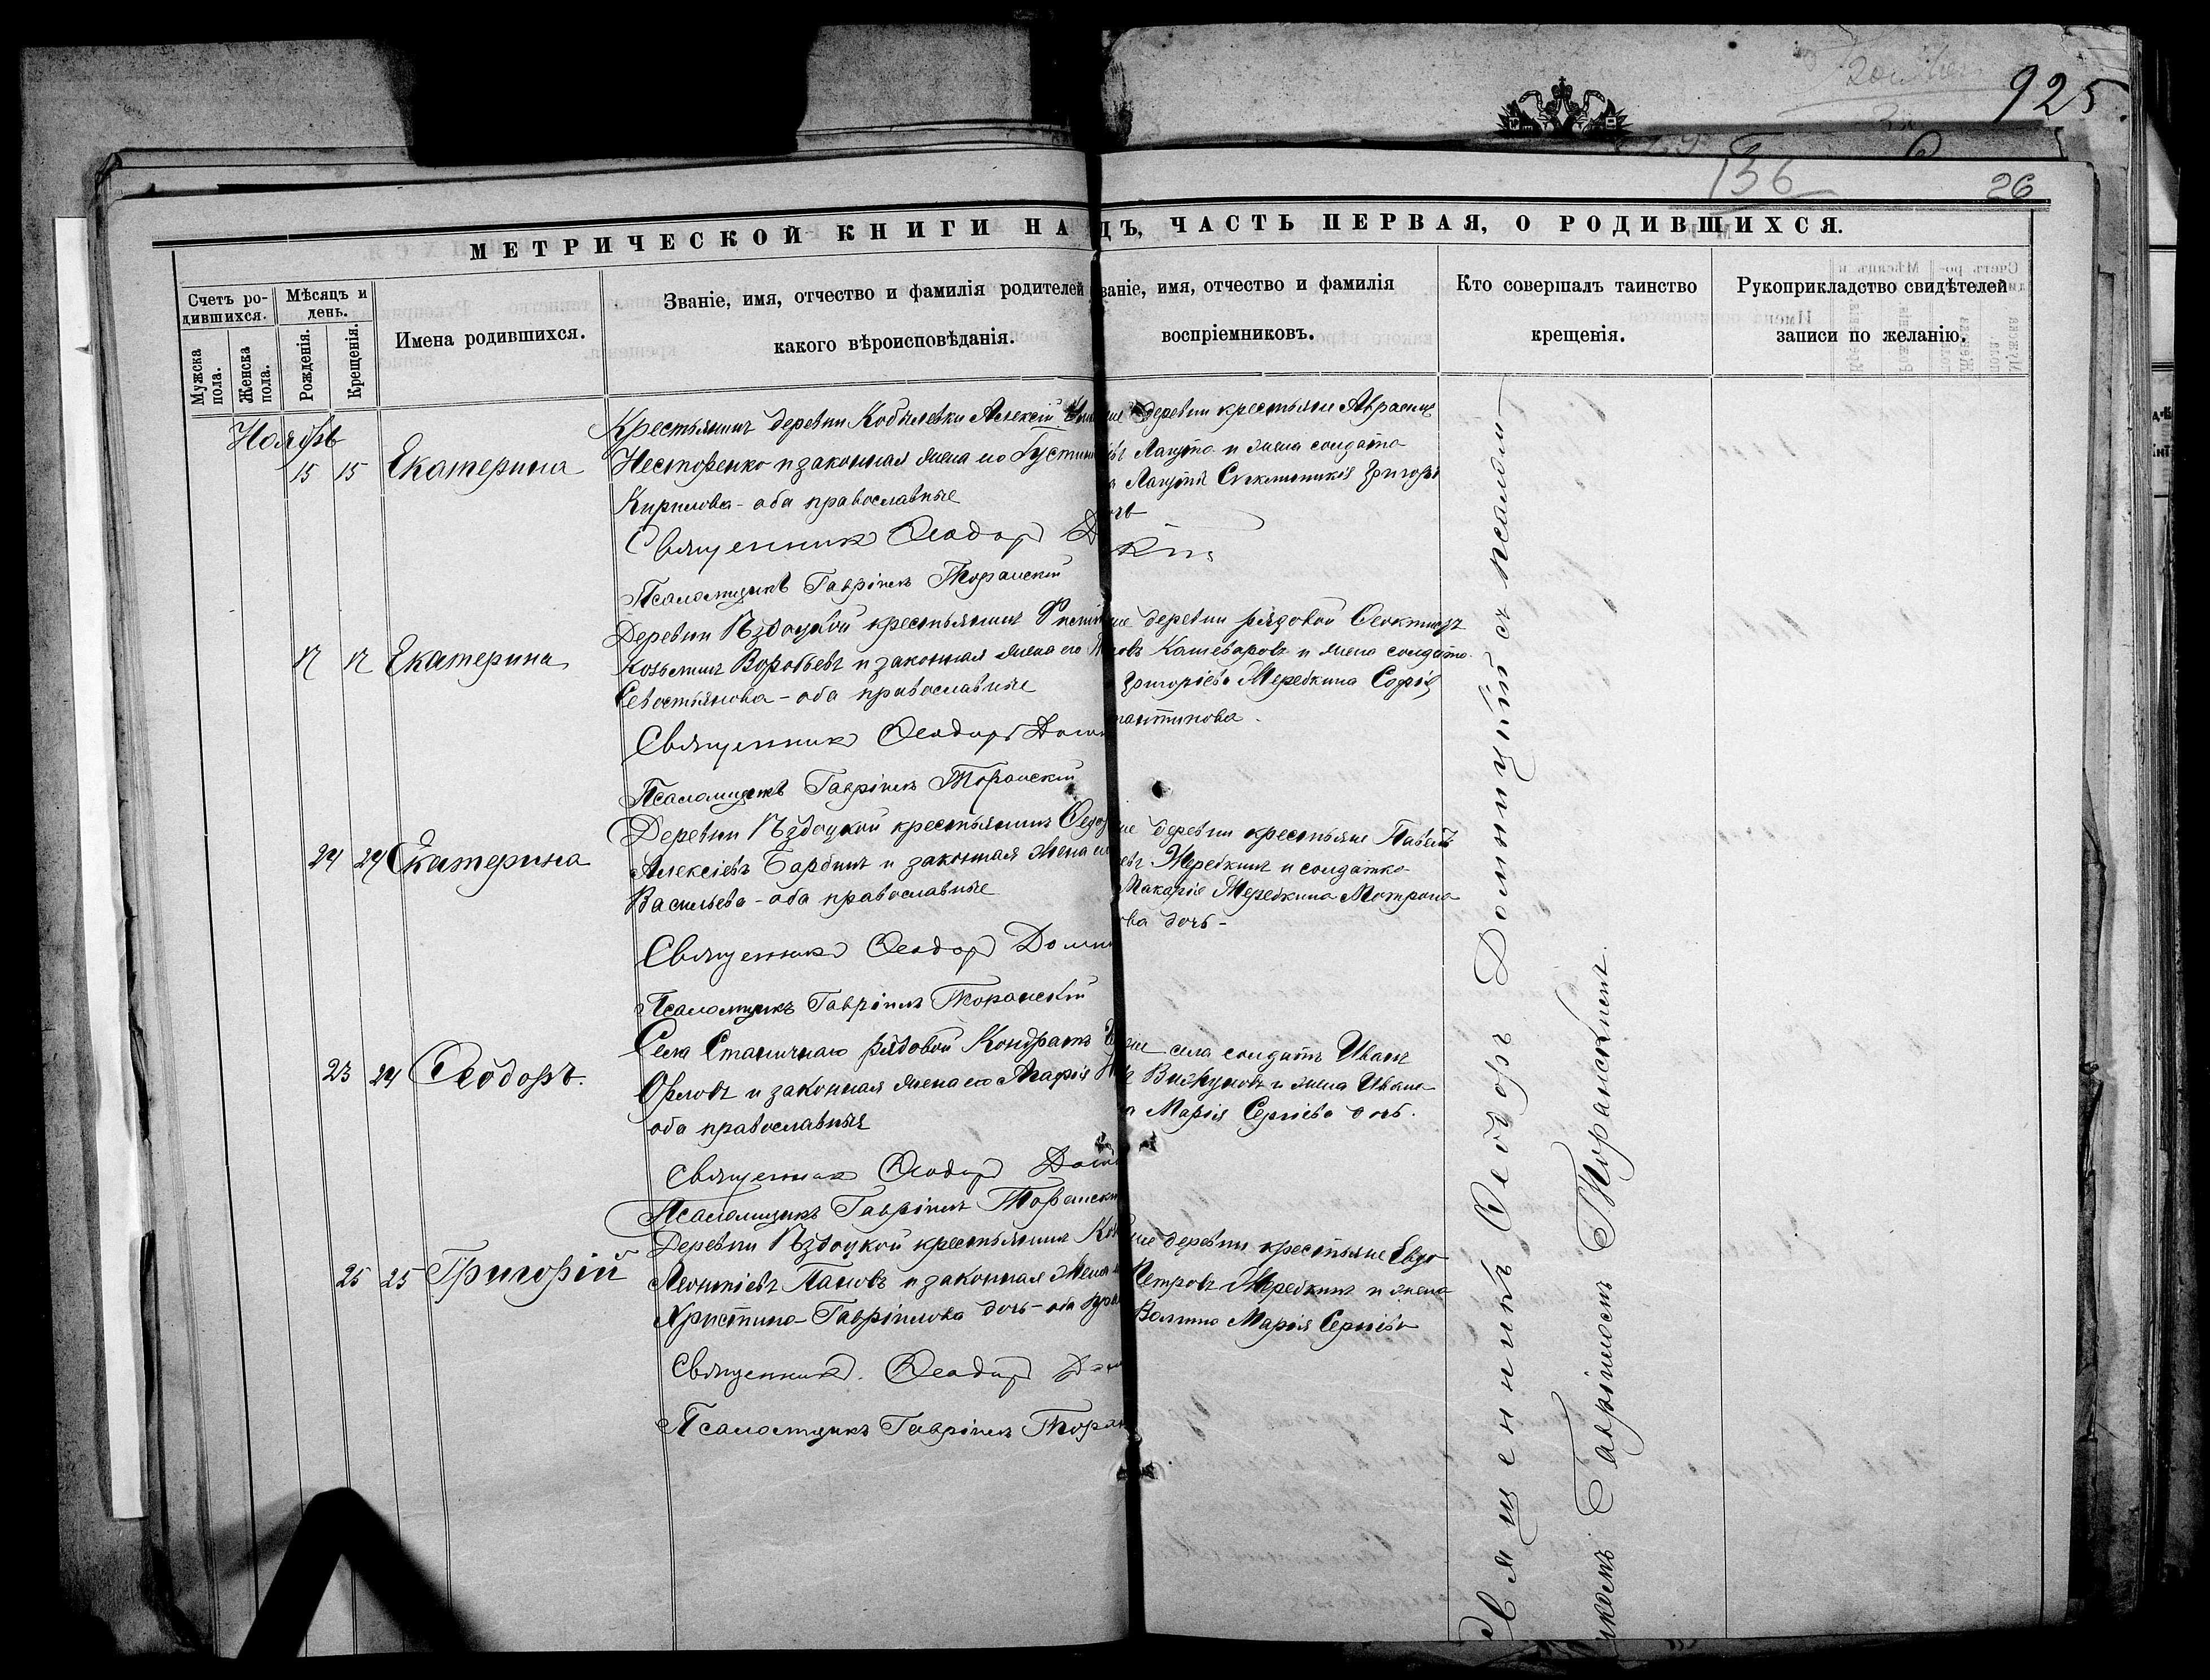 925
136
26
МЕТРИЧЕСКОЙ КНИГИ НА ДЪ, ЧАСТЬ ПЕРВАЯ, О РОДИВШИХСЯ.
Счетъ ро-
дившихся.
Мужска пола.
Женска пола.
Мѣсяцъ и
день.
Рожденія.
Крещенія.
Имена родившихся.
Званіе, имя, отчество и фамилія родителей
какого вѣроисповѣданія.
званіе, имя, отчество и фамилія
воспріемниковъ.
Кто совершалъ таинство
крещенія.
Рукоприкладство свидѣтелей
записи по желанію.
Ноябрь
15 15 Екатерина
Крестьянинъ деревни Кобылевки Алексій
Несторенко и законная жена его Густин
Кирилова - оба православные
Священник Ѳеодор
Псаломщикъ Гавріилъ Торанскій
деревни крестьяне
Лагута и жена солдата
Григорь
17 17 Екатерина
Деревни Ѣздоцкой крестьянинъ
Козьминъ Воробьевъ и законная жена его
Севостьянова - оба православные
Священник Ѳеодоръ
Псаломщикъ Гавріилъ Торанскій
деревни рядовой Ѳеоктистъ
Кашеваровъ и жена солдата
Григоріева Жеребкина Софія
тантинова.
24 24 Екатерина
Деревни Ѣздоцкой крестьянинъ Ѳедо
Алексіевъ Барбинъ и законная жена его
Васильева - оба православные
Священник Ѳеодор Доми
Псаломщикъ Гавріилъ Торанскій
деревни крестьяне Павелъ
Жеребкинъ и солдатка
Макарія Жеребкина Мотрона
ова дочь -
23 24 Ѳеодоръ.
Села Станичнаго рядовой Кондратъ
Орловъ и законная жена его Агафія
оба православныя
Священник Ѳеодор
Псаломщикъ Гавріилъ Торански
села солдатъ Иванъ
и жена Ивана
Марія Сергіева дочь.
25 25 Григорій
Деревни Ѣздоцкой крестьянинъ
Леонтіевъ Пановъ и законная жена
Христина Гавріилова дочь - оба прав
Священник. Ѳеодор
Псаломщикъ Гавріилъ Торан
деревни крестьяне Евдо
Петровъ Жеребкинъ и жена
Марія Сергіева
Священникъ Ѳеодоръ Домницкій съ псалом
щикомъ Гавріиломъ Торанскимъ.